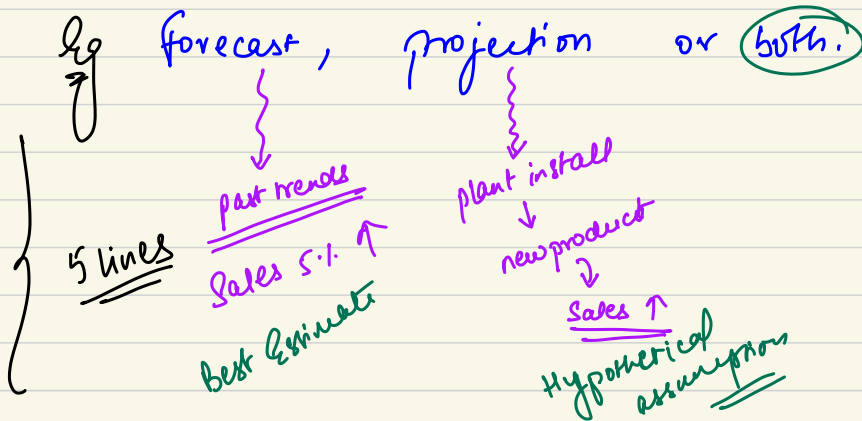 Eg forecast, projection or both.
past trends
Sales 5% ↑
Best Estimate
plant install
↓
new product
↓
Sales ↑
Hypothetical
assumption
5 lines